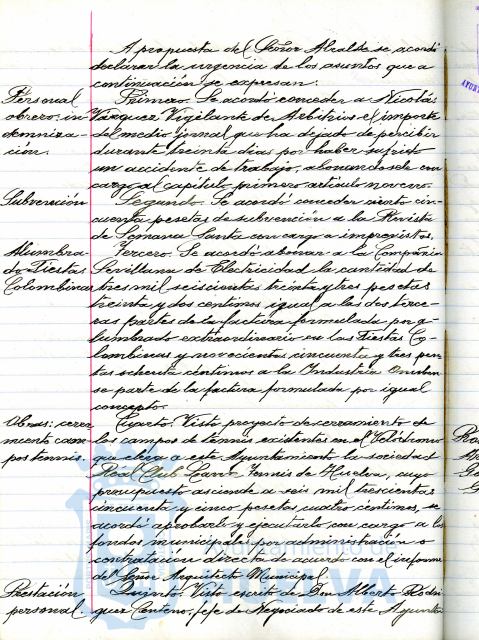 A propuesta del Señor Alcalde se acordó
declarar la urgencia de los asuntos que a
continuación se expresan:
Personal
obrero: in
demniza
ción.
Primero. Se acordó conceder a Nicolás
Vázquez Vigilante de Arbitrios el importe
del medio jornal que ha dejado de percibir
durante treinta días por haber sufrido
un accidente de trabajo, abonándosele con
cargo al capítulo primero artículo noveno.
Subvención
Segundo. Se acordó conceder ciento cin-
cuenta pesetas de subvención a la Revista
de Semana Santa con cargo a imprevistos.
Alumbra-
do Fiestas
Colombinas
Tercero. Se acordó abonar a la Compañía
Sevillana de Electricidad la cantidad de
tres mil seiscientas treinta y tres pesetas
treinta y dos céntimos igual a las dos terce-
ras partes de la factura formulada por a-
lumbrado extraordinario en las Fiestas Co-
lombinas y novecientas cincuenta y tres pese
tas ochenta céntimos a la Industria
se parte de la factura formulada por igual
concepto.
Obras: cerra
miento cam
pos tennis.
Cuarto. Visto proyecto de cerramiento de
los campos de tennis existentes en el Velódromo
que eleva a este Ayuntamiento la sociedad
Real Club Lawn Tennis de Huelva, cuyo
presupuesto asciende a seis mil trescientas
cincuenta y cinco pesetas cuatro céntimos, se
acordó aprobarlo y ejecutarlo con cargo a los
fondos municipales por administración o
contratación directa de acuerdo con el informe
del Señor Arquitecto Municipal.
Prestación
personal.
Quinto. Visto escrito de Don Alberto Rodrí
guez Centeno, jefe de Negociado de este Ayunta
Ayuntamiento de
HUELVA